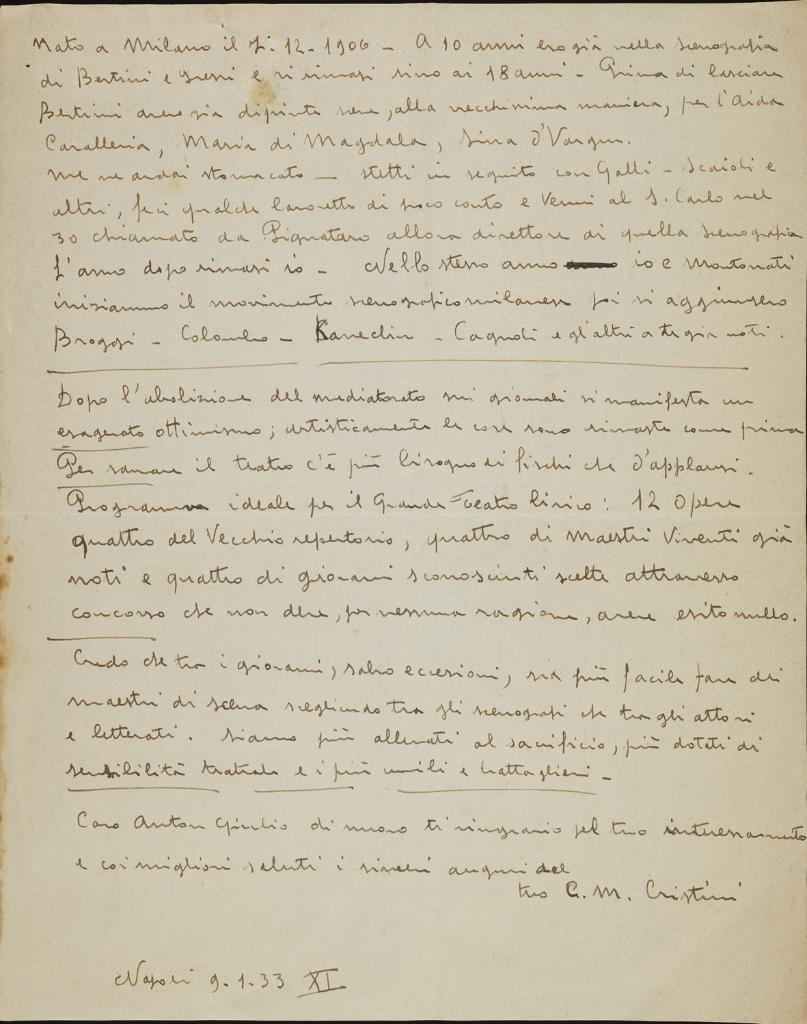 Nato a Milano il 7-12-1906 - A 10 anni ero già nella scenografia
di Bertini e Pressi e vi rimasi sino ai 18 anni - Prima di lasciare
Bertini avevo già dipinto scene, alla vecchissima maniera, per l'Aida
Cavalleria, Maria di Magdala, Sina d'Vargun.
me ne andai stomacato - stetti in seguito con Galli - Scaioli e
altri, feci qualche lavoretto di poco conto e Venni al S. Carlo nel
30 chiamato da Pignataro allora direttore di quella scenografia
L'anno dopo rimasi io - Nello stesso anno io e Montonati
iniziammo il movimento scenografico milanese poi si aggiunsero
Broggi - Colombo - Kaneclin - Cagnoli e gl'altri a te già noti.
Dopo l'abolizione del mediatorato sui giornali si manifesta un
esagerato ottimismo; artisticamente le cose sono rimaste come prima
Per sanare il teatro c'è più bisogno di fischi che d'applausi.
Programma ideale per il Grande Teatro lirico: 12 Opere
quattro del Vecchio repertorio, quattro di Maestri Viventi già
noti e quattro di giovani sconosciuti scelte attraverso
concorso che non deve, per nessuna ragione, avere esito nullo.
Credo che tra i giovani, salvo eccezioni, sia più facile fare dei
maestri di scena scegliendo tra gli scenografi che tra gli attori
e letterati. Siamo più allenati al sacrificio, più dotati di
sensibilità teatrale e i più umili e battaglieri -
Caro Anton Giulio di nuovo ti ringrazio pel tuo interessamento
e coi migliori saluti i sinceri auguri del
tuo C. M. Cristini
Napoli 9.1.33 XI